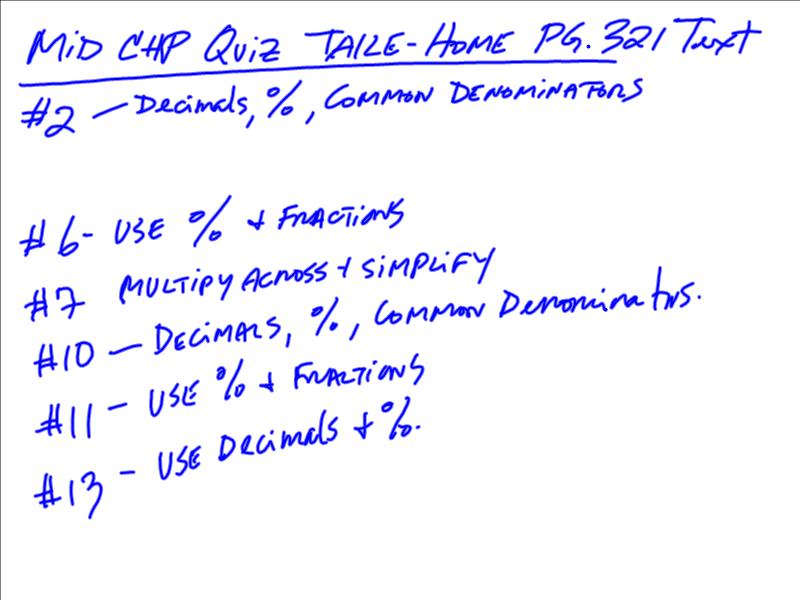 MID CHP QUIZ TAKE-HOME PG. 321 Text
#2 — Decimals, %, COMMON DENOMINATORS
#6- USE % + FRACTIONS
#7 MULTIPY ACROSS + SIMPLIFY
#10 — DECIMALS, %, COMMON DENOMINATORS.
#11 - USE % + FRACTIONS
#13 - USE Decimals + %.